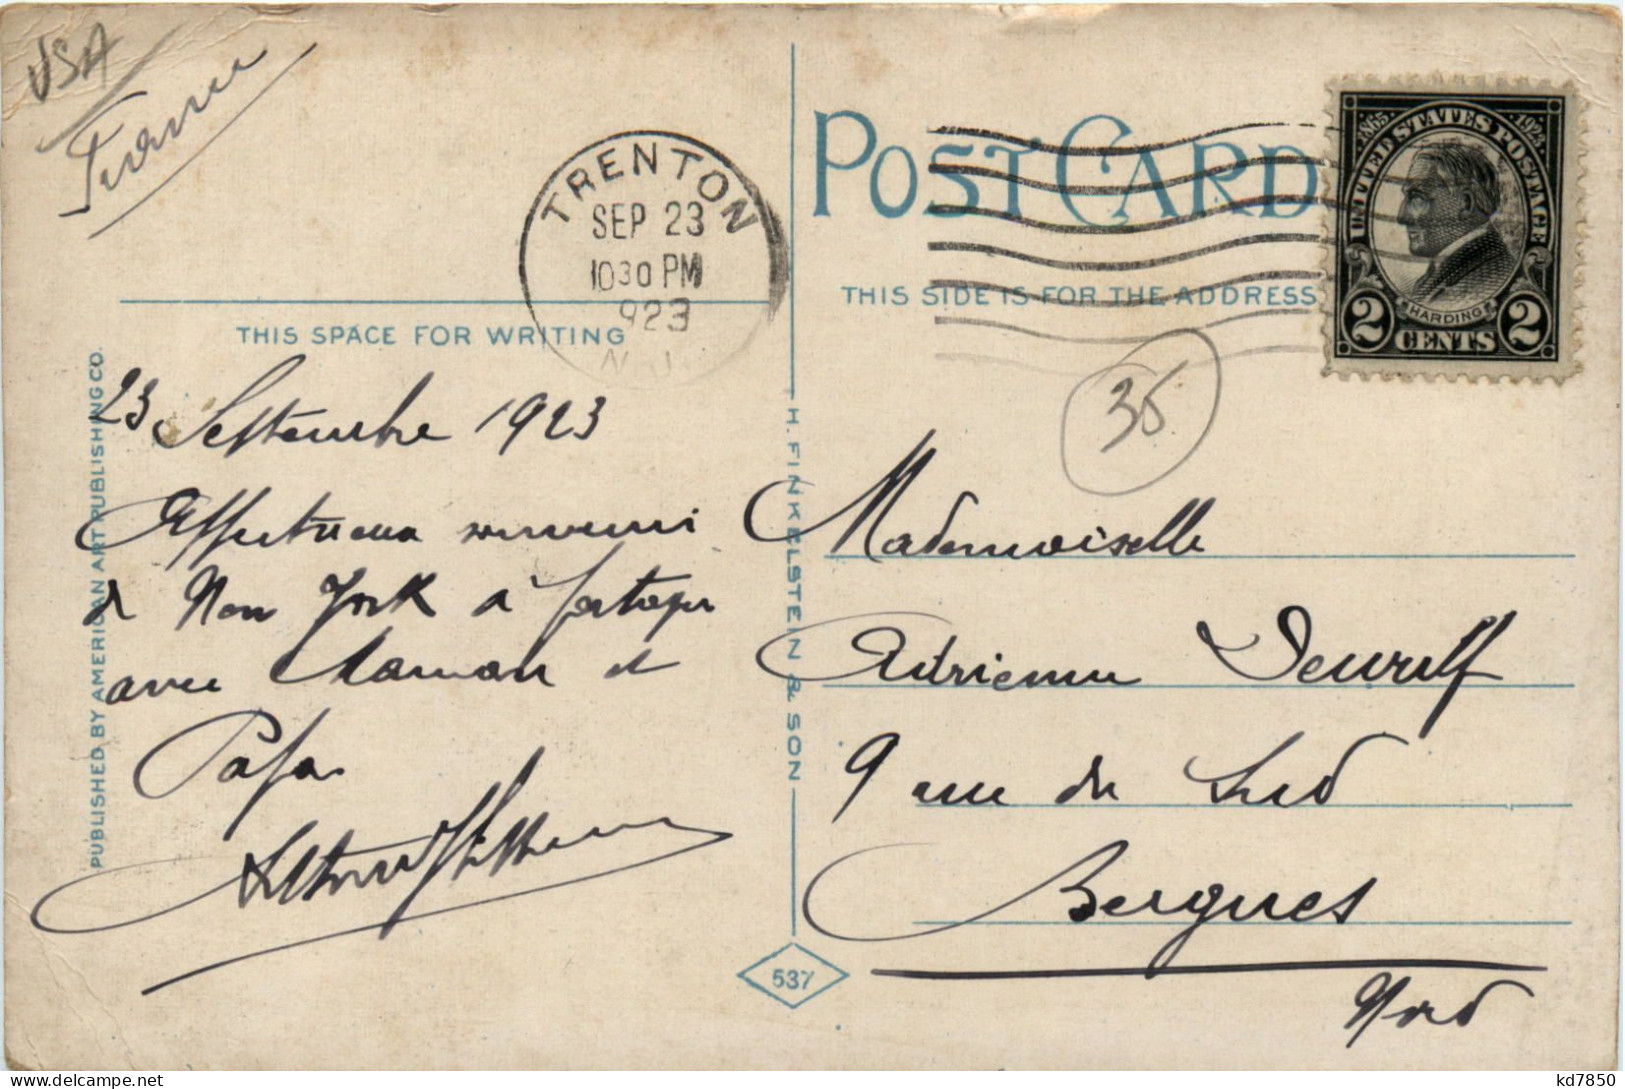 USA
France
TRENTON
SEP 23
1030 PM
923
N.J.
POST CARD
1865 1923
UNITED STATES POSTAGE
HARDING
2 CENTS 2
THIS SIDE IS FOR THE ADDRESS
THIS SPACE FOR WRITING
36
23 Septembre 1923
Affectueux souvenir
de New York à partager
avec Maman et
Papa
Mademoiselle
Adrienne
9 rue du Sud
Bergues
Nord
PUBLISHED BY AMERICAN ART PUBLISHING CO.
H. FINKELSTEIN & SON
537
kd7850